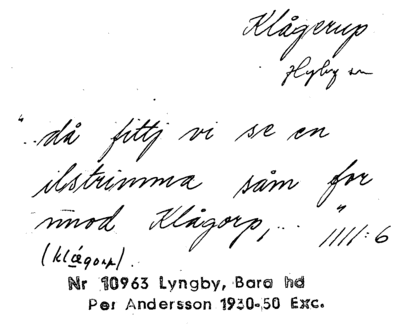 Klågerup
Hyby sn
"..då fittj vi se en
ilstrimma såm for
mod Klågorp,..." 1111:6
(klågorp).
Nr 10963 Lyngby, Bara hd
Per Andersson 1930-50 Exc.